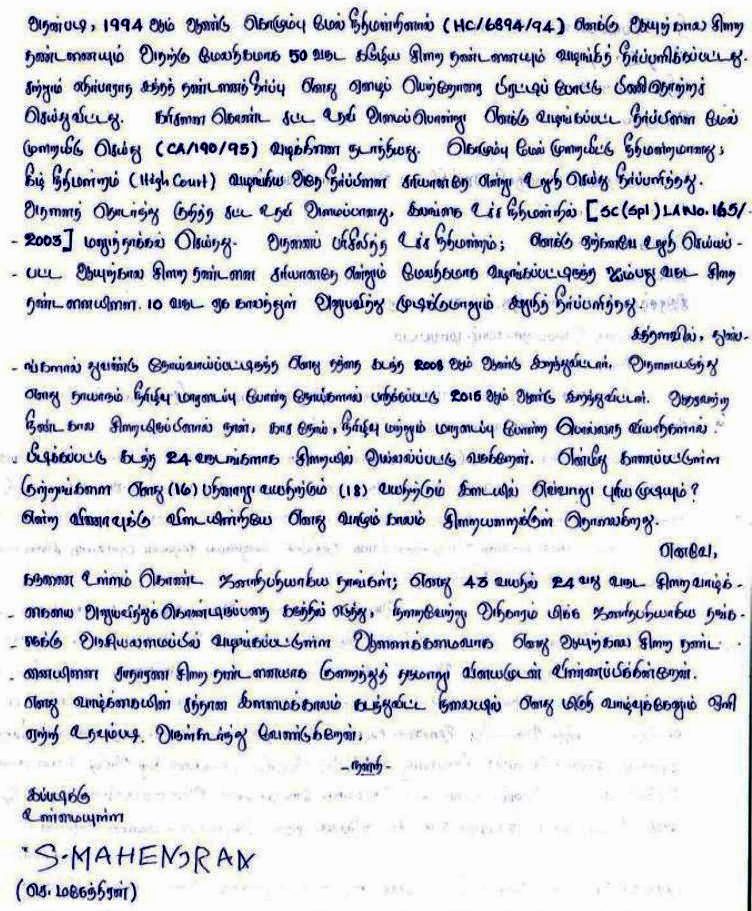 அதன்படி, 1994 ஆம் ஆண்டு கொழும்பு மேல் நீதிமன்றினால் (HC/6894/94) எனக்கு ஆயுற்கால சிறை
தண்டணையும் அதற்கு மேலதிகமாக 50 வருட கடூழிய சிறை தண்டணையும் வழங்கித் தீர்ப்பளிக்கப்பட்டது.
சற்றும் எதிர்பாராத இந்தத் தண்டனைத் தீர்ப்பு எனது ஏழைப் பெற்றோரை புரட்டிப் போட்டு பிணிதொற்றச்
செய்துவிட்டது. கரிசனை கொண்ட சட்ட உதவி அமைப்பொன்று எனக்கு வழங்கப்பட்ட தீர்ப்பினை மேல்
முறையீடு செய்து (CA/190/95) வழக்கினை நடாத்தியது. கொழும்பு மேல் முறையீட்டு நீதிமன்றமானது;
கீழ் நீதிமன்றம் (High Court) வழங்கிய அதே தீர்ப்பினை சரியானதே என்று உறுதி செய்து தீர்ப்பளித்தது.
அதனைத் தொடர்ந்து குறித்த சட்ட உதவி அமைப்பானது, இலங்கை உச்ச நீதிமன்றில் [SC (Spl) LA No. 165/-
- 2003] மனுத்தாக்கல் செய்தது. அதனைப் பரிசீலித்த உச்ச நீதிமன்றம்; எனக்கு ஏற்கனவே உறுதி செய்யப்
- பட்ட ஆயுற்கால சிறை தண்டனை சரியானதே என்றும் மேலதிகமாக வழங்கப்பட்டிருந்த ஐம்பது வருட சிறை
தண்டனையினை. 10 வருட ஒரு காலத்துள் அனுபவித்து முடிக்குமாறும் கூறித் தீர்ப்பளித்தது.
இந்நிலையில், துன்ப-
- ங்களால் துவண்டு நோய்வாய்ப்பட்டிருந்த எனது தந்தை கடந்த 2008 ஆம் ஆண்டு இறந்துவிட்டார். அதனையடுத்து
எனது தாயாரும் நீரிழிவு மாரடைப்பு போன்ற நோய்களால் பாதிக்கப்பட்டு 2015 ஆம் ஆண்டு இறந்துவிட்டார்.
நீண்ட கால சிறையிருப்பினால் நான், காச நோய், நீரிழிவு மற்றும் மாரடைப்பு போன்ற பொல்லாத வியாதிகளால்
- பீடிக்கப்பட்டு கடந்த 24 வருடங்களாக சிறையில் அல்லல்ப்பட்டு வருகிறேன். என்மீது காணப்பட்டுள்ள
குற்றங்களை எனது (16) பதினாறு வயதிற்கும் (18) வயதிற்கும் இடையில் எவ்வாறு புரிய முடியும்?
என்ற வினாவுக்கு விடையின்றியே எனது வாழும் காலம் சிறையறைக்குள் தொலைகிறது.
எனவே,
கருணை உள்ளம் கொண்ட ஜனாதிபதியாகிய தாங்கள்; எனது 43 வயதில் 24 வது வருட சிறை வாழ்க் -
- கையை அனுபவித்துக் கொண்டிருப்பதை கருத்தில் எடுத்து, நிறைவேற்று அதிகாரம் மிக்க ஜனாதிபதியாகிய தங்க-
- ளுக்கு அரசியலமைப்பில் வழங்கப்பட்டுள்ள ஆணைக்கமைவாக எனது ஆயுற்கால சிறை தண்ட
- னையினை சாதாரண சிறை தண்டனையாக குறைத்துத் தருமாறு வினயமுடன் விண்ணப்பிக்கின்றேன்.
எனது வாழ்க்கையின் சந்தான இளமைக்காலம் கடந்துவிட்ட நிலையில் எனது மீதி வாழ்வுக்கேனும் ஒளி
ஏற்றி உதவும்படி அன்புடன் வேண்டுகிறேன்.
- நன்றி -
இப்படிக்கு
உண்மையுள்ள
S-MAHENDRAN
(செ. மகேந்திரன்)